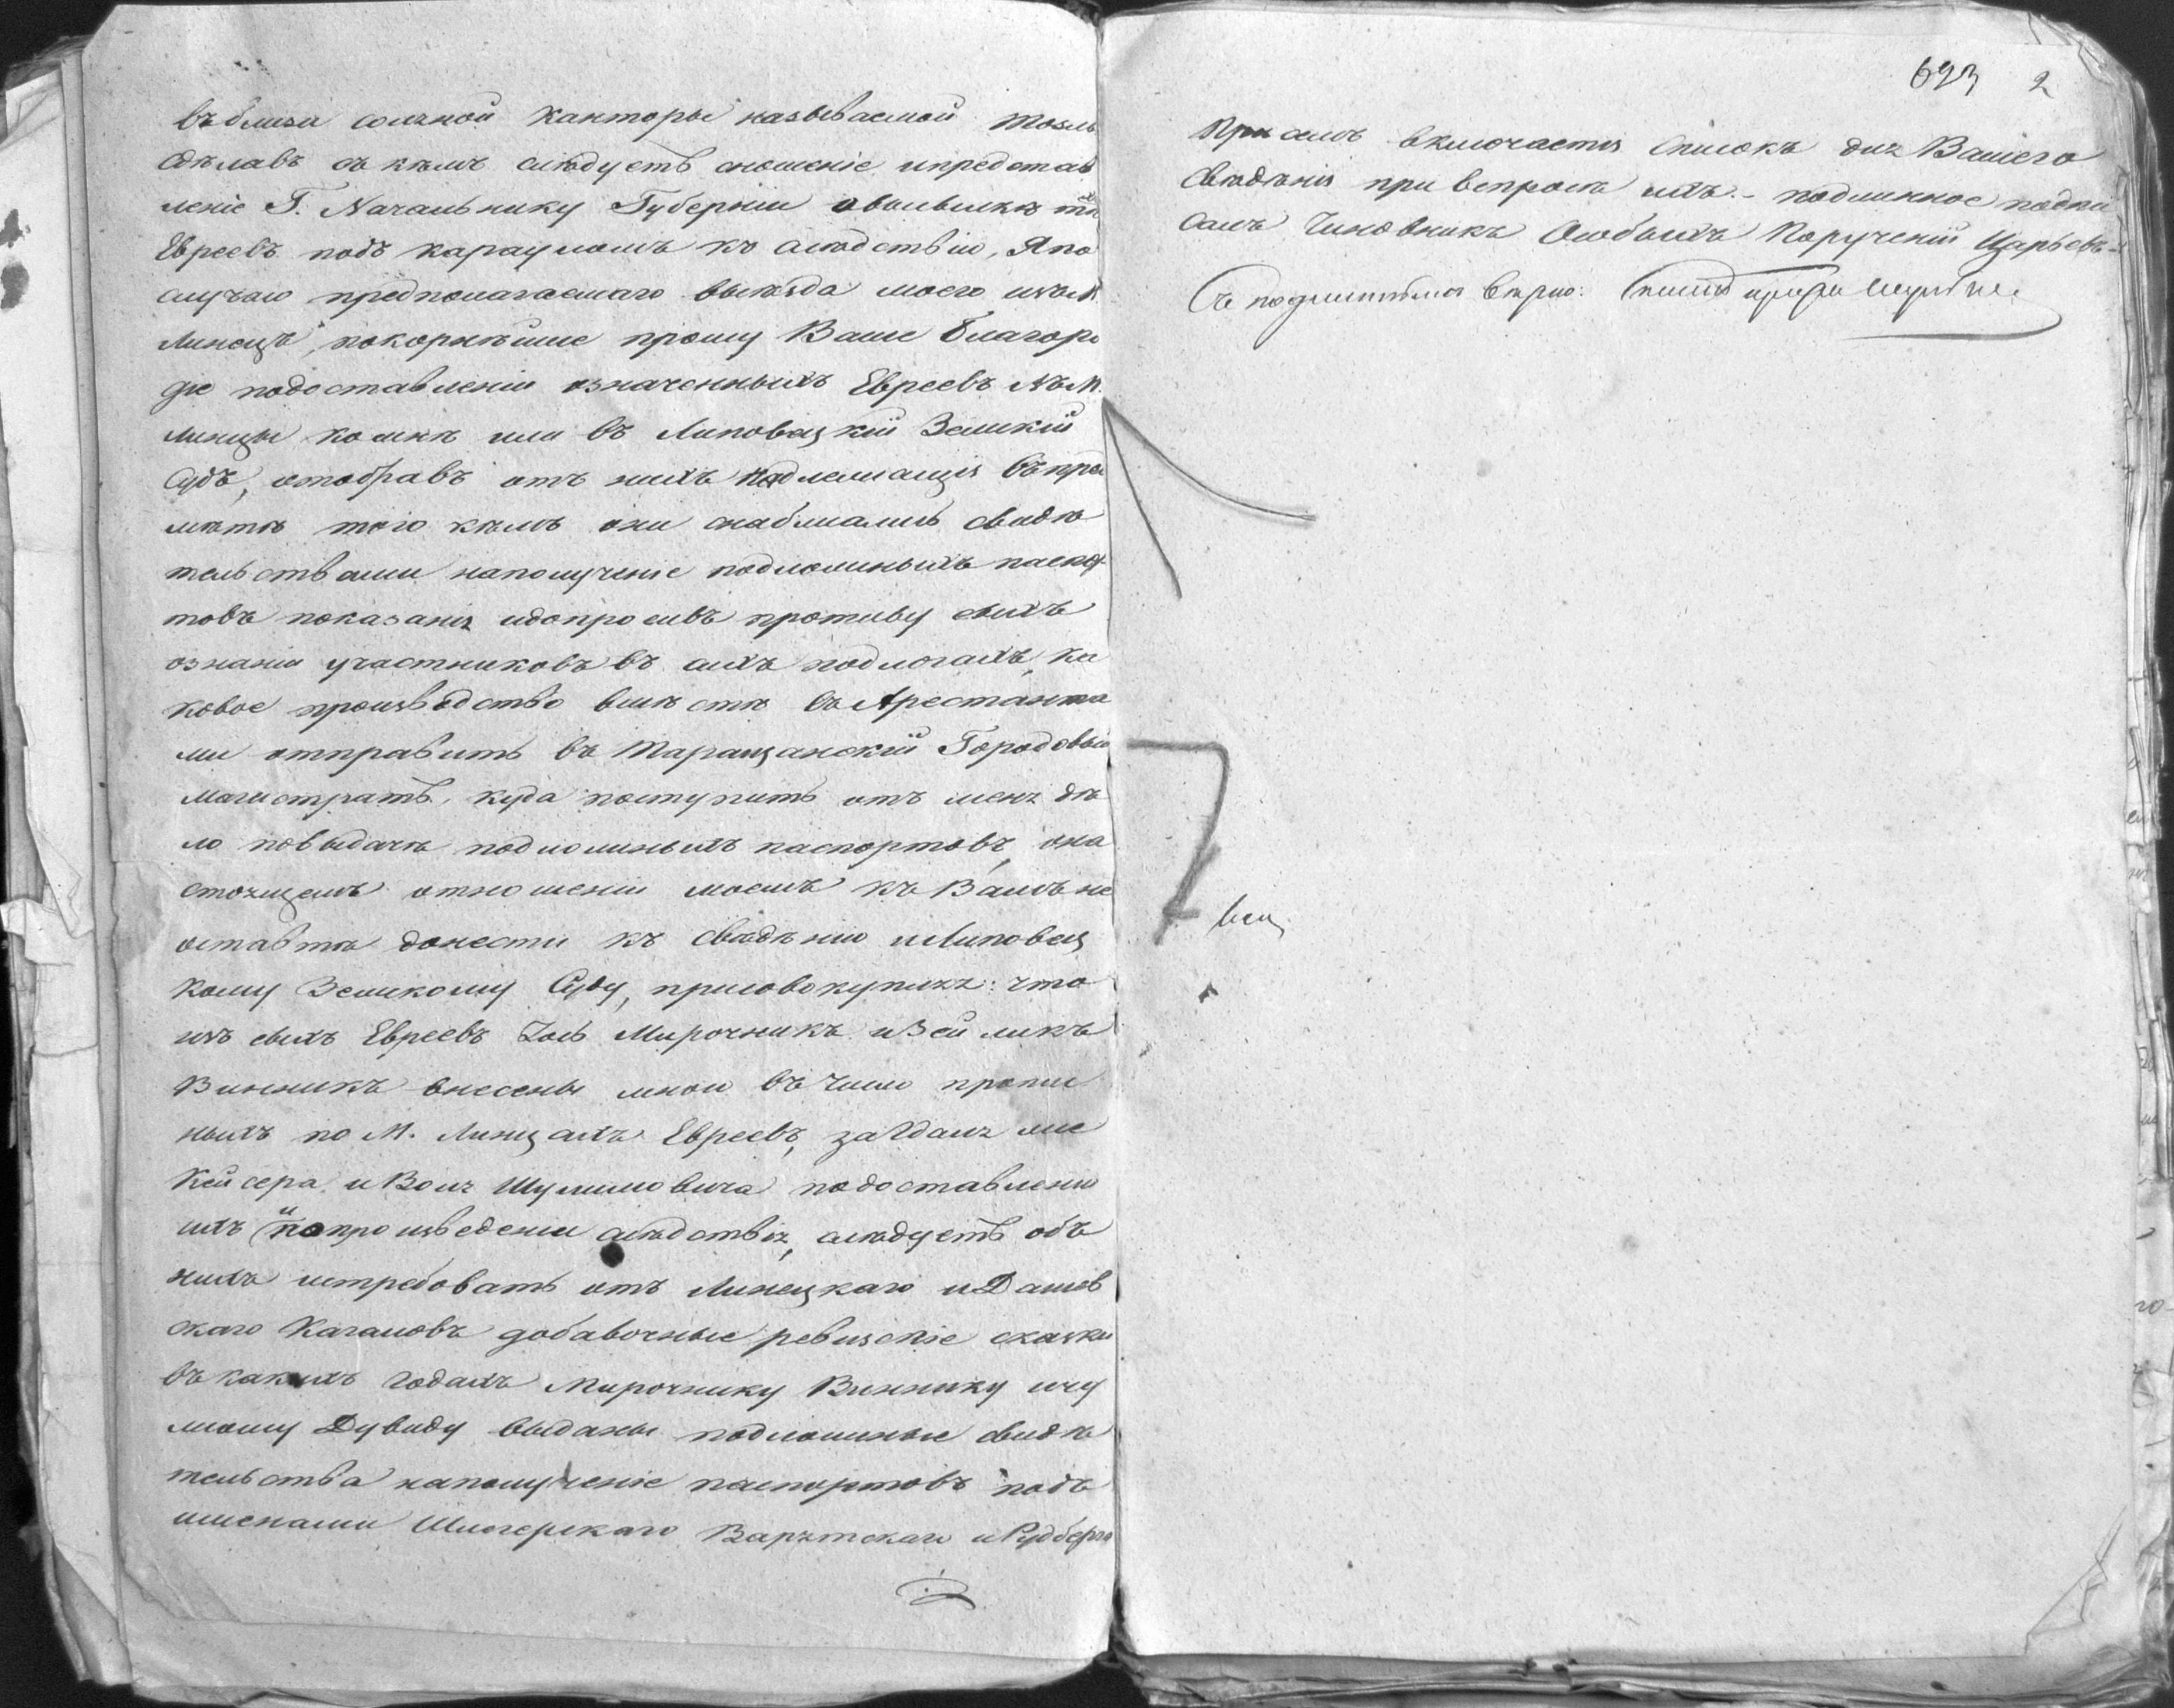 въблизи соленой Канторы называемой
сдѣлавъ съ кѣмъ слѣдуетъ сношеніе ипредстав
леніе Г. Начальнику Губерніи овысылкѣ тѣхъ
Евреевъ подъ карауломъ къ слѣдствію, Япо
случаю предполагаемаго выѣзда моего изъМ
Линецъ, покорнѣйше прошу Ваше Благоро
діе подоставленіи означенныхъ Евреевъ въМ.
Линцы комнѣ или въ Липовецкій Земскій
Судъ, отобравъ отъ нихъ надлежащія въпред
мѣтѣ того кѣмъ они снабжались свидѣ
тельствами наполученіе подложныхъ паспор
товъ показанія идопросивъ противу сихъ
ознанія участниковъ въ сихъ подлогахъ, ка
ковое производство вмѣстѣ съАрестанта
ми отправить въ Таращанскій Городовый
Магистратъ, куда поступитъ отъ меня дѣ
ло повыдачѣ подложныхъ паспортовъ, она
стоящемъ отношеніи моемъ къ Вамъ не
оставте донести къ свѣдѣнію иЛиповец
кому Земскому Суду, присовокупляя: что
изъ сихъ Евреевъ Іось Мирочникъ иЗейликъ
Винникъ внесены мною въ число пропис
ныхъ по М. Линцамъ Евреевъ,
Кейсера и Воля Шулимовича подоставленіи
ихъ и попроизведеніи слѣдствія, слѣдуетъ объ
нихъ истребовать отъ Линецкаго иДашев
скаго Кагаловъ добавочные ревизскіе сказки
въ какихъ годахъ Мирочнику Виннику
Дувиду выданы подложные свидѣ
тельства наполученіе паспортовъ подъ
именами
693 2
При семъ включается Списокъ для Вашего
Свѣдѣнія при вопросѣ ихъ. - подлинное подпи
салъ Чиновникъ Особыхъ Порученій Царьевъ -
Съ подлиннымъ вѣрно: